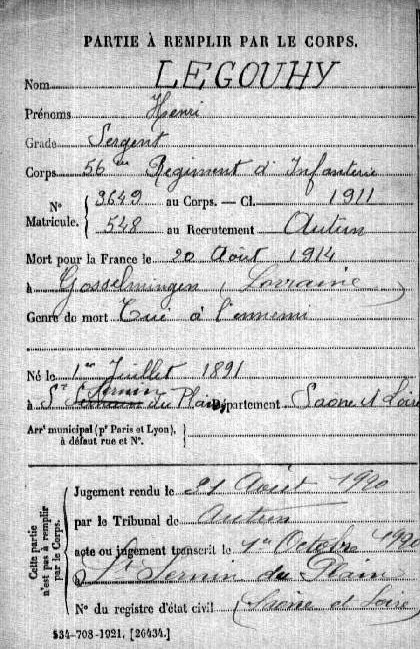 PARTIE À REMPLIR PAR LE CORPS.
Nom LEGOUHY
Prénoms Henri
Grade Sergent
Corps 56me Régiment d'Infanterie
N° Matricule. { 3649 au Corps. — Cl. 1911
548 au Recrutement Autun
Mort pour la France le 20 Août 1914
à Gosselmingen (Lorraine)
Genre de mort Tué à l'ennemi
Né le 1er Juillet 1891
à St Sernin du Plain Département Saône et Loire
Arrt municipal (pr Paris et Lyon),
à défaut rue et N°.
Cette partie n'est pas à remplir par le Corps.
Jugement rendu le 21 Août 1920
par le Tribunal de Autun
acte ou jugement transcrit le 1er Octobre 1920
à St Sernin du Plain
N° du registre d'état civil (Saône et Loire)
534-708-1921. [26434.]